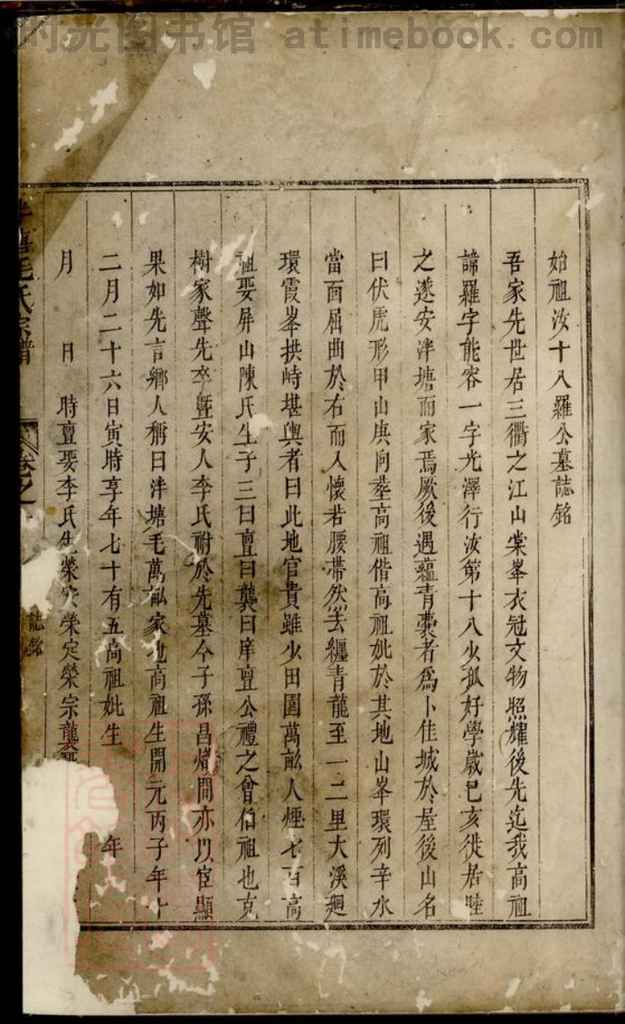 时光图书馆 atimebook.com
始祖汝十八羅公墓誌銘
吾家先世居三衢之江山棠峯衣冠文物照耀後先迄我高祖
諱羅字能容一字光澤行汝第十八少孤好學歲已亥徙居睦
之遂安泮塘而家焉厥後遇蘊青囊者為卜佳城於屋後山名
曰伏虎形甲山庚向塟高祖偕高祖妣於其地山峯環列辛水
當面屈曲於右而入懷若腰帶然玄纏青龍至一二里大溪廻
環霞峯拱峙堪輿者曰此地官貴雖少田園萬畝人煙七百高
祖娶屏山陳氏生子三曰亶曰龔曰庠亶公禮之曾伯祖也克
樹家聲先卒暨安人李氏祔於先墓今子孫昌熾間亦以宦顯
果如先言鄉人稱曰泮塘毛萬畝家也高祖生開元丙子年十
二月二十六日寅時享年七十有五高祖妣生 年
月 日 時亶娶李氏生榮 榮定榮宗龔
毛氏宗譜 卷之 誌銘